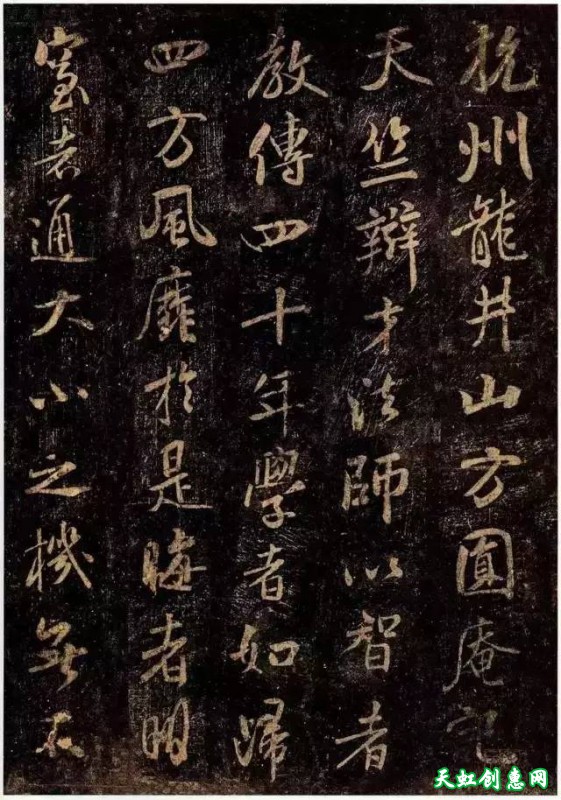 杭州龍井山方圓庵記
天竺辯才法師以智者
教傳四十年學者如歸
四方風靡於是晦者明
窒者通大小之機無不
天虹创惠网